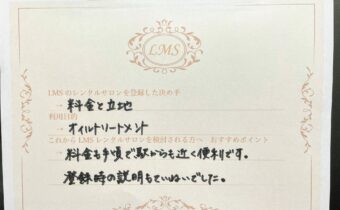 LMS
LMSのレンタルサロンを登録した決め手
→ 料金と立地
利用目的
→ オイルトリートメント
これからLMSレンタルサロンを検討される方へ おすすめポイント
料金も手頃で駅からも近く便利です。
登録時の説明もていねいでした。